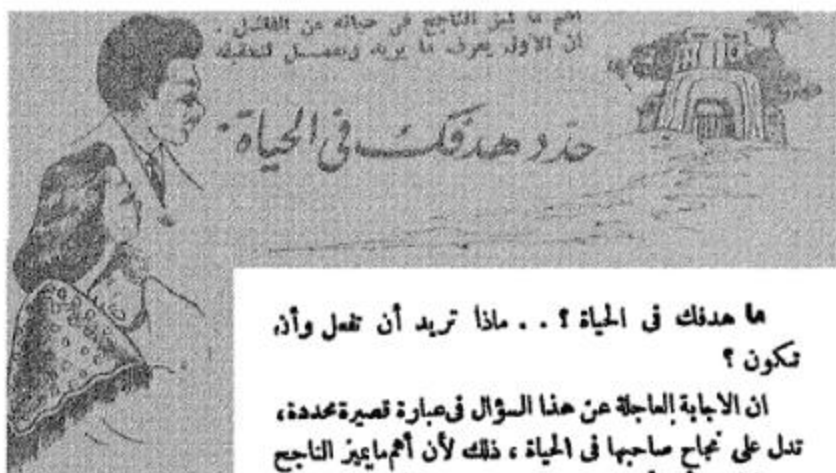 أهم ما يميز الناجح في حياته عن الفاشل ،
ان الأول يعرف ما يريد ويعمل لتحقيقه
حدد هدفك في الحياة
ما هدفك فى الحياة ؟ . . ماذا تريد أن تفعل وأن
تكون ؟
ان الاجابة العاجلة عن هذا السؤال فى عبارة قصيرة محددة ،
تدل على نجاح صاحبها فى الحياة ، ذلك لأن أهم مايميز الناجح